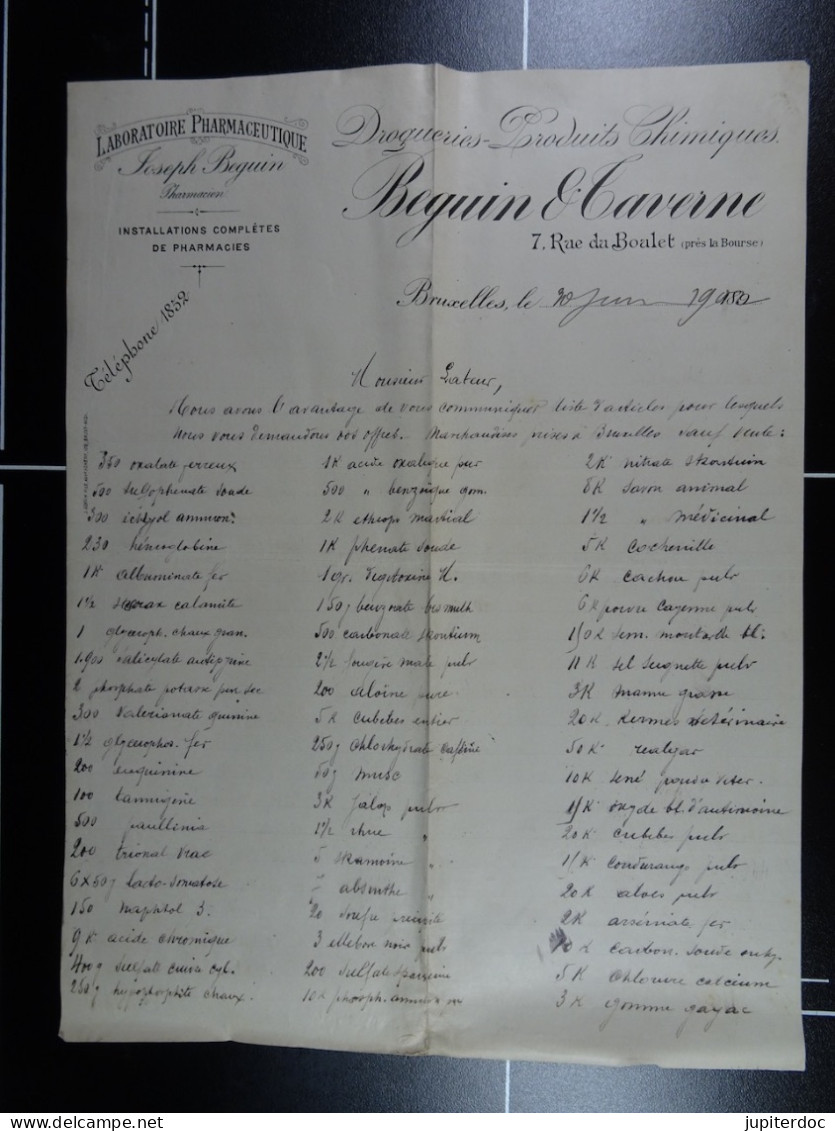 LABORATOIRE PHARMACEUTIQUE
Joseph Beguin
Pharmacien
INSTALLATIONS COMPLÈTES
DE PHARMACIES
Téléphone 1852
Drogueries-Produits Chimiques.
Beguin & Taverne
7, Rue du Boulet (près la Bourse)
Bruxelles, le 30 Juin 190
Monsieur Lateur,
Nous avons l'avantage de vous communiquer liste d'articles pour lesquels
nous vous demandons vos offres. Marchandises prises à Bruxelles sauf vente:
350 oxalate ferreux
500 sulfophenate soude
300 ichtyol ammon.
250 hémoglobine
1K albuminate fer
1 1/2 storax calamite
1 glyceroph. chaux gran.
1.900 salicylate antipyrine
2 phosphate potasse pur sec
300 valerianate quinine
1 1/2 glycerophos. fer
200 euquinine
100 tannigène
500 paullinia
200 trional vrac
6x50g lacto-somatose
150 naphtol 3.
9K acide chromique
400g sulfate cuivre cyl.
250g hypophosphite chaux.
1K acide oxalique pur
500 " benzoique gom.
2K ethiops martial
1K phenate soude
1gr. Digitoxine M.
150g benzoate bismuth
500 carbonate strontium
2 1/2 fougère male pulv
200 aloïne pure.
5K cubebes entier
250g chlorhydrate caféine
50g musc
3K jalap pulv
1 1/2 rhue "
5 skamoine "
absinthe "
20 soufre
3 ellebore noir pulv
200 sulfate sparteine
10K phosph. ammon pur
2K nitrate strontium
8K savon animal
1 1/2 " médicinal
5K cochenille
6K cachou pulv
6K poivre cayenne pulv
10K sem. moutarde bl:
11K sel seignette pulv
3K manne grasse
20K Kermes vétérinaire
50K realgar
10K séné poudre veter.
1K oxyde bl. d'antimoine
20K cubebes pulv
1K condurango pulv
20K aloes pulv
2K arséniate fer
10K carbon. soude anhy.
5K chlorure calcium
3K gomme gayac
jupiterdoc